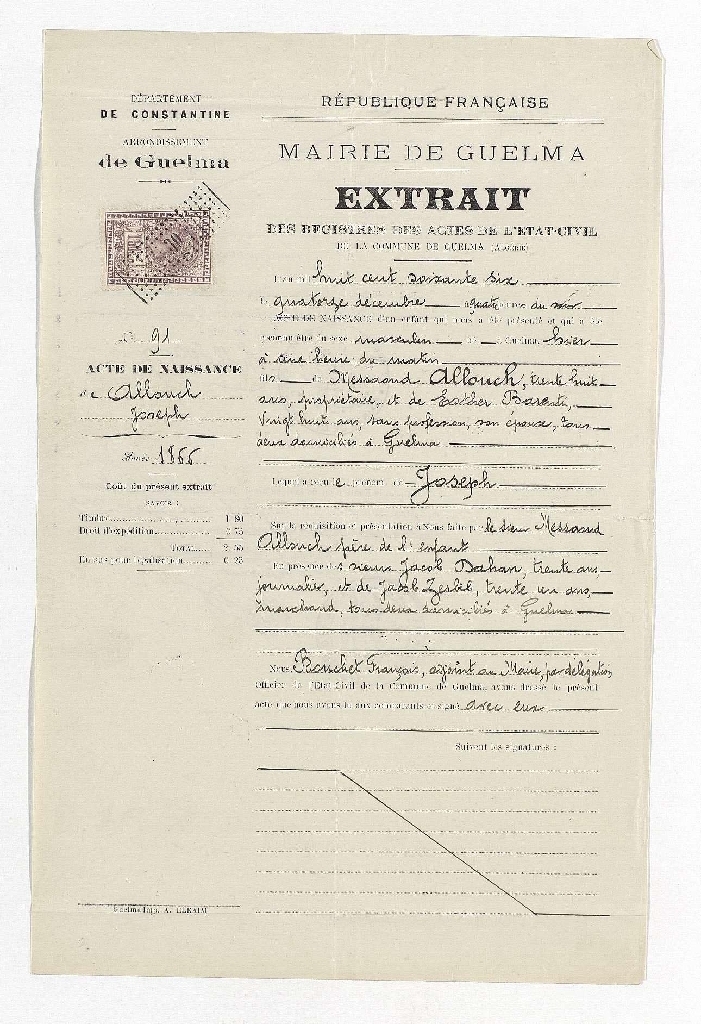 DÉPARTEMENT
DE CONSTANTINE
ARRONDISSEMENT
de Guelma
No 91
ACTE DE NAISSANCE
de Allouch
Joseph
Année 1866
Coût du présent extrait
SAVOIR :
Timbre 1 80
Droit d'expédition 0 75
TOTAL 2 55
En sus, pour légalisation 0 25
Guelma Imp. A.
RÉPUBLIQUE FRANÇAISE
MAIRIE DE GUELMA
EXTRAIT
DES REGISTRES DES ACTES DE L'ETAT-CIVIL
DE LA COMMUNE DE GUELMA (ALGÉRIE)
L'an mil huit cent soixante six
le quatorze décembre à quatre heures du soir
ACTE DE NAISSANCE d'un enfant qui nous a été présenté et qui a été
reconnu être du sexe masculin né à Guelma, hier
à une heure du matin
fils de Messaoud Allouch, trente huit
ans, propriétaire, et de Esther Barenté,
vingt huit ans, sans profession, son épouse, tous
deux domiciliés à Guelma
Lequel a reçu le prénom de Joseph
Sur la réquisition et présentation à Nous faite par le sieur Messaoud
Allouch père de l'enfant
En présence des sieurs Jacob Dahan, trente ans,
journalier, et de Jacob Zerbib, trente un ans,
marchand, tous deux domiciliés à Guelma
Nous, François, adjoint au Maire, par délégation
Officier de l'Etat-Civil de la Commune de Guelma avons dressé le présent
acte que nous avons lu aux comparants et signé avec eux
Suivent les signatures :